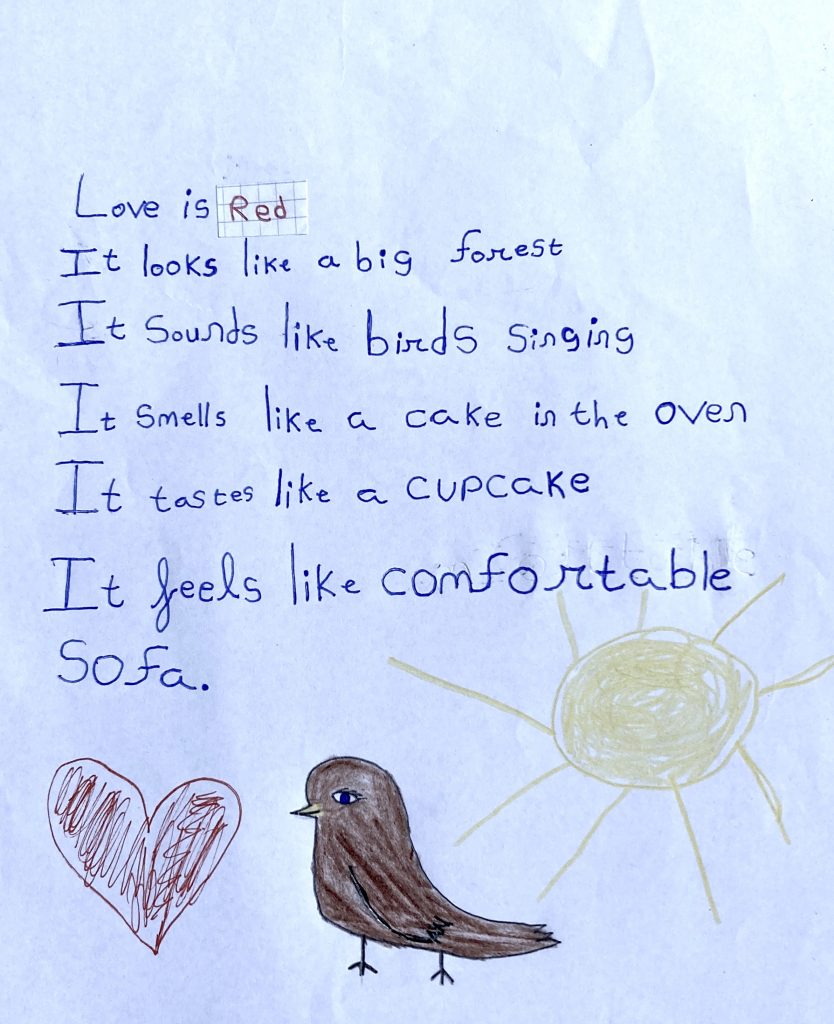 Love is Red
It looks like a big forest
It sounds like birds singing
It smells like a cake in the oven
It tastes like a cupcake
It feels like comfortable
sofa.